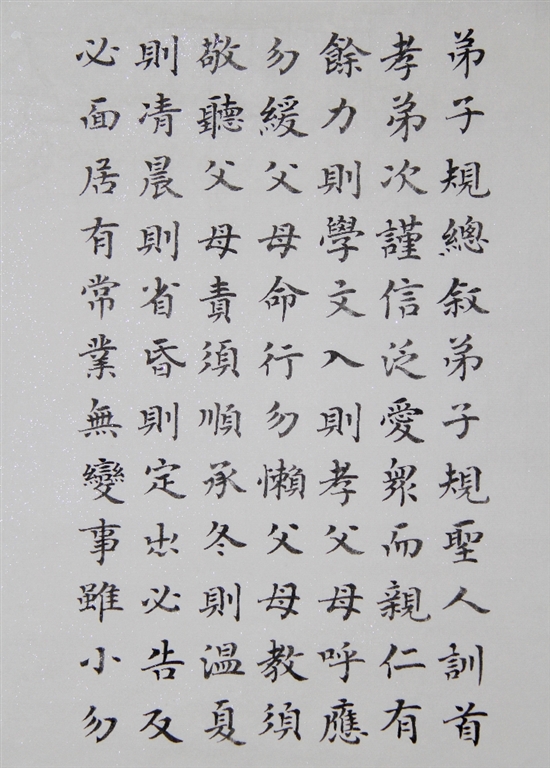 弟子規總敘弟子規聖人訓首
孝弟次謹信泛愛眾而親仁有
餘力則學文入則孝父母呼應
勿緩父母命行勿懶父母教須
敬聽父母責須順承冬則温夏
則凊晨則省昏則定出必告反
必面居有常業無變事雖小勿